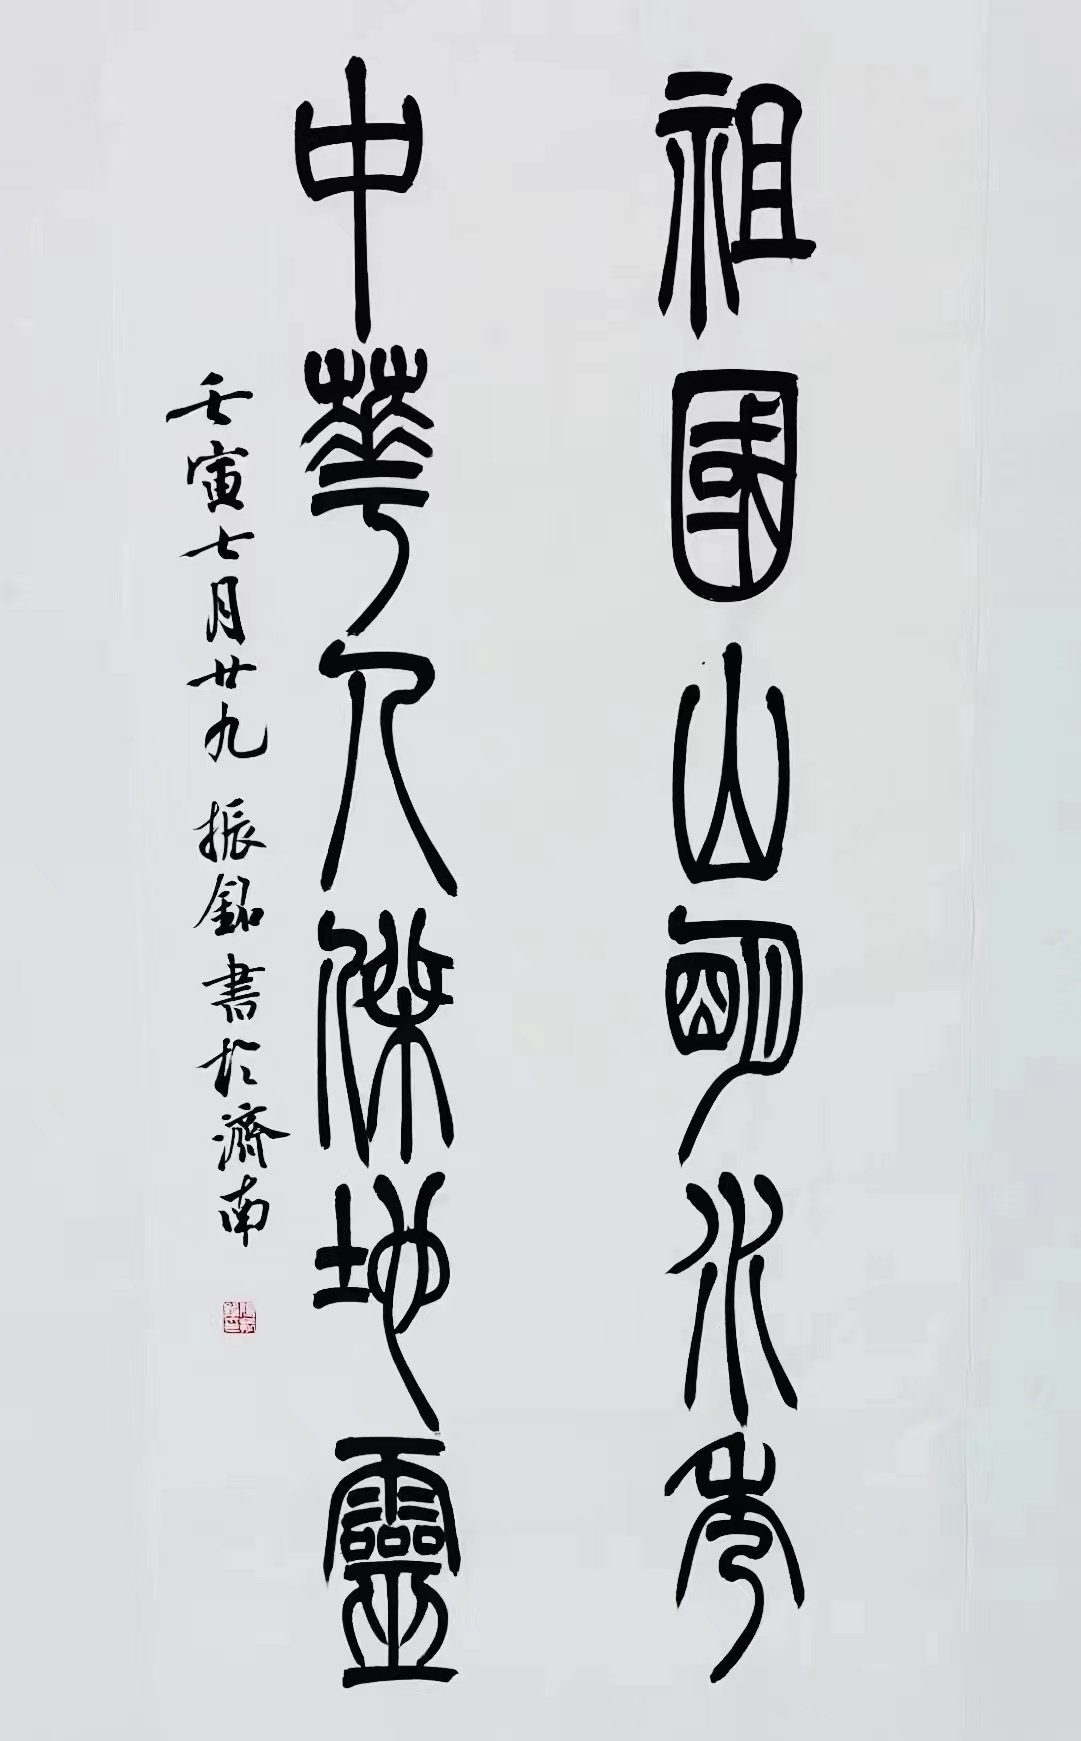 祖國山朙水秀
中華人傑地靈
壬寅七月廿九 振銘書於濟南